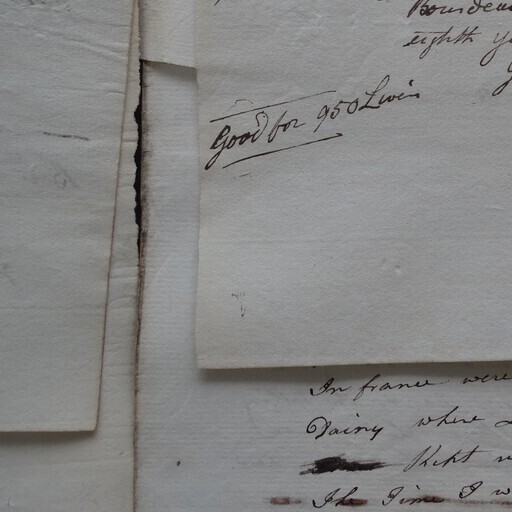 Bourdeau
eighth y
Good for 950 Livres
In france were
Dairy where
Kept
The Time I w